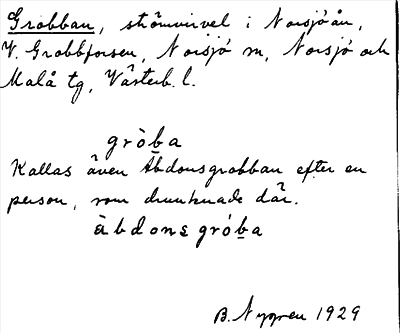 Grobban, strömvirvel i Norsjöån,
V. Grobbforsen, Norsjö sn, Norsjö och
Malå tg, Västerb. l.
gròba
Kallas även Abdonsgrobban efter en
person, som drunknade där.
àbdonsgróba
B. Nygren 1929